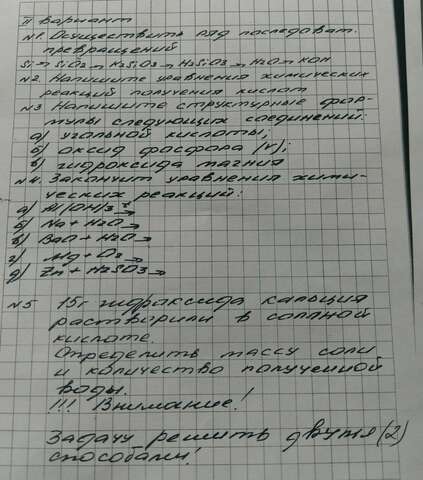 II вариант
№1 Осуществить ряд последоват.
превращений
Si→SiO2→K2SiO3→H2SiO3→H2O→KOH
№2. Напишите уравнения химических
реакций получения кислот
№3 Напишите структурные фор-
мулы следующих соединений:
а) угольной кислоты;
б) оксид фосфора (V);
в) гидроксида магния
№4. Закончит уравнения хими-
ческих реакций:
а) Al(OH)3 t→
б) Na + H2O→
в) BaO + H2O→
г) Mg + O2→
д) Zn + H2SO3→
№5 15г гидроксида кальция
растворили в соляной
кислоте.
Определить массу соли
и количество полученной
воды.
!!! Внимание!
Задачу решить двумя (2)
способами!